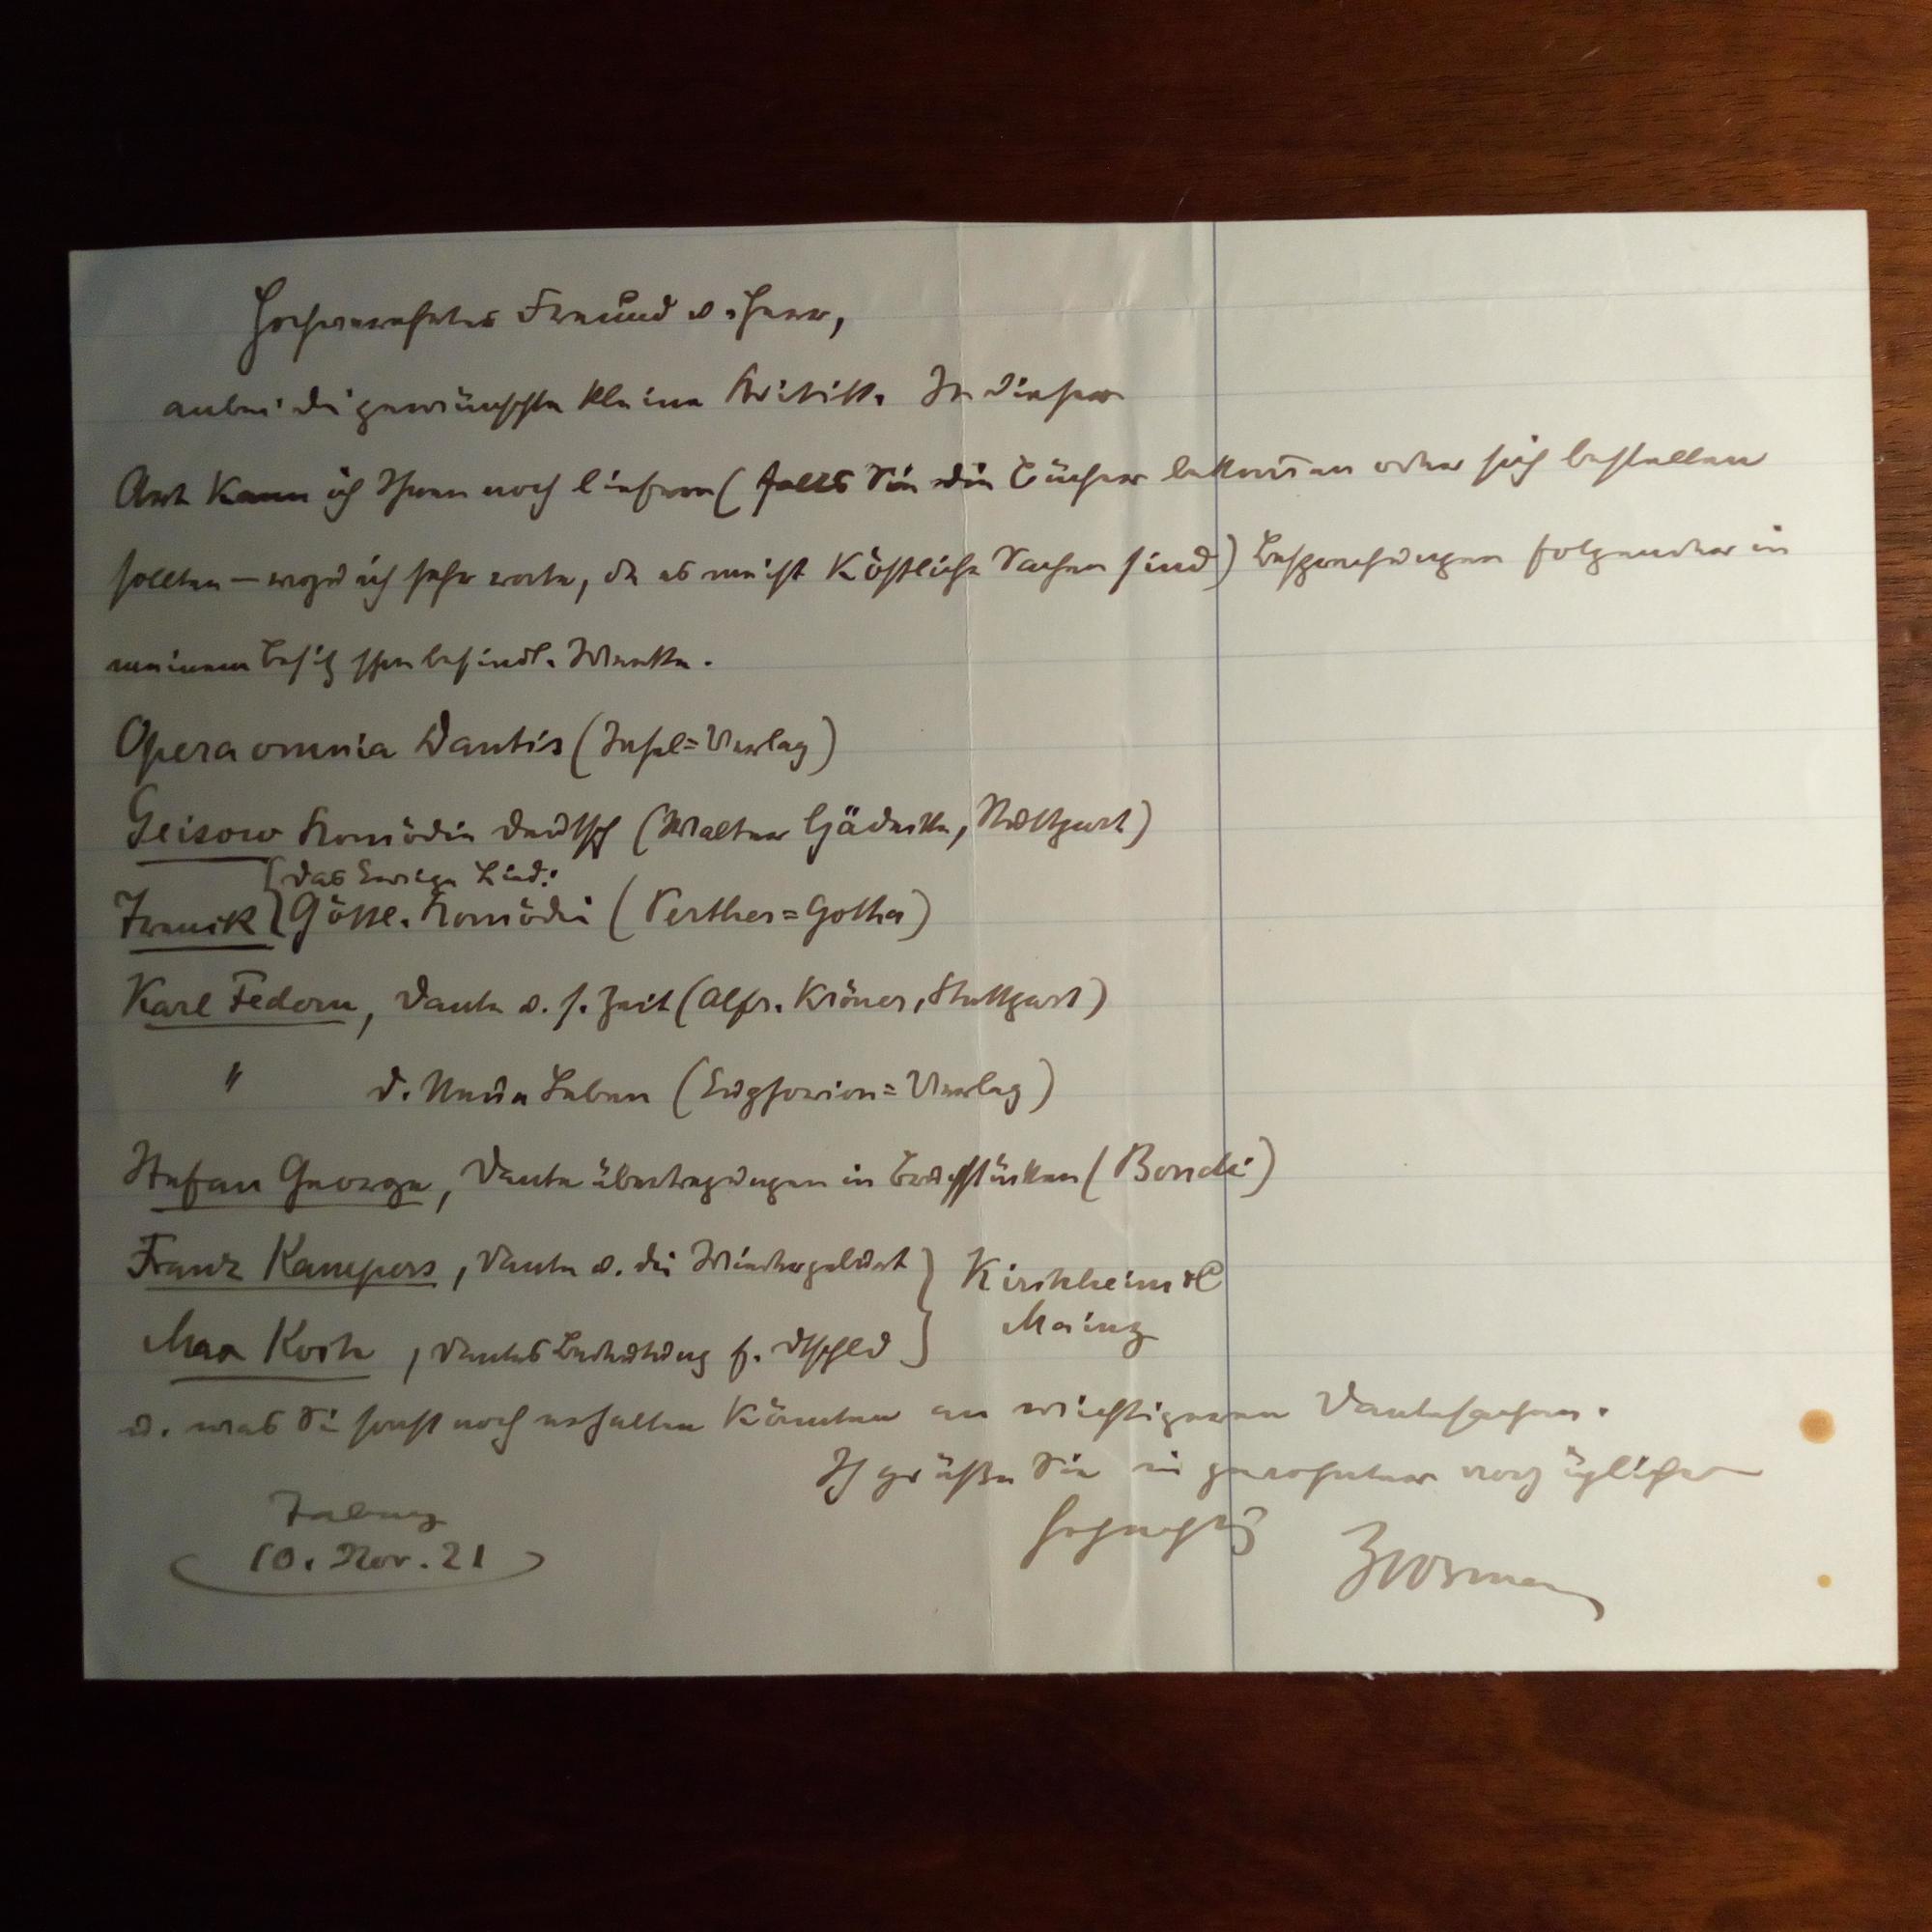 Hochverehrter Freund u. Herr,
anbei die gewünschte kleine Kritik. In dieser
Art kann ich Ihnen noch liefern (falls Sie die Bücher bekom̅en oder sich bestellen
sollten – wozu ich sehr rate, da es meist köstliche Sachen sind) Besprechungen folgender in
meinem Besitz schon befindl. Werke.
Opera omnia Dantis (Insel=Verlag)
Geisow Komödie deutsch (Walter Hädecke, Stuttgart)
das Ewige Lied:
Göttl. Komödie (Perthes=Gotha)
Karl Federn, Dante u. s. Zeit (Alfr. Kröner, Stuttgart)
" d. Neue Leben (Euphorion=Verlag)
Stefan George, Dante übertragungen in Bruchstücken (Bondi)
Franz Kampers, Dante u. die Wiedergeburt } Kirchheim &C
Max Koch, Dantes Bedeutung f. Dtschld } Mainz
u. was Sie sonst noch erhalten könnten an wichtigeren Dantesachen.
Ich grüße Sie in gewohnter vorzüglicher
Hochachtg
10. Nov. 21